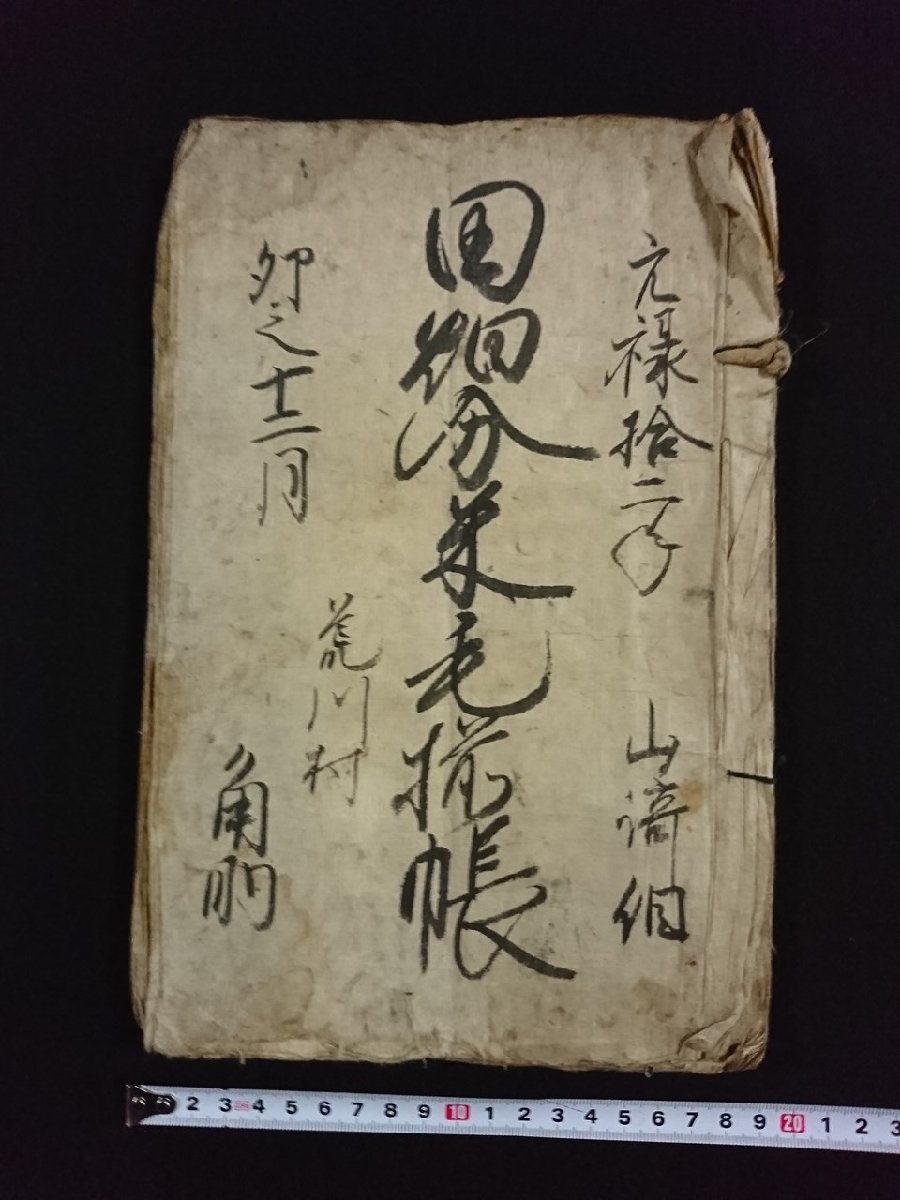 元禄拾二年 山崎組
田畑分米毛揃帳
卯之十二月
荒川村
角
2 3 4 5 6 7 8 9 10 1 2 3 4 5 6 7 8 9 20 1 2 3